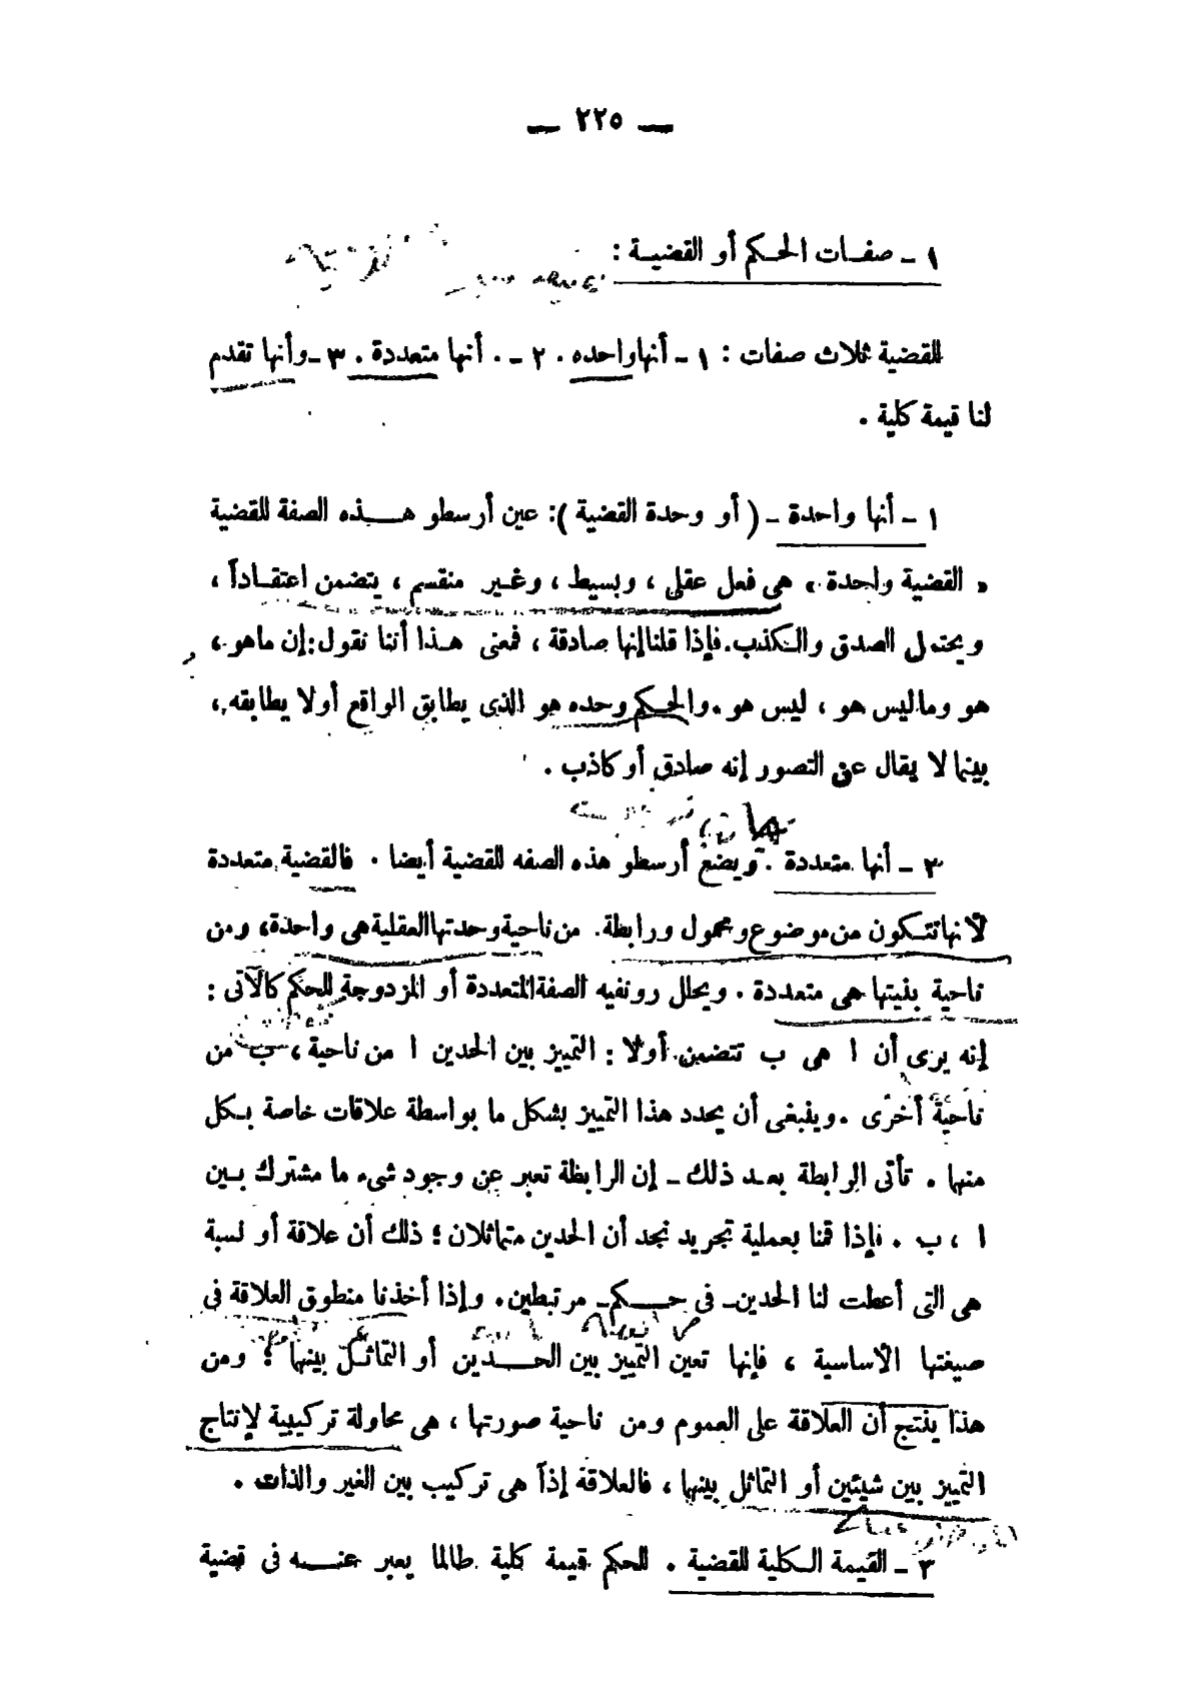 — ٢٢٥ —
١ - صفات الحكم أو القضية :
للقضية ثلاث صفات : ١ - أنها واحده . ٢ - . أنها متعددة . ٣ - وأنها تقدم
لنا قيمة كلية .
١ - أنها واحدة - ( أو وحدة القضية ) : عين أرسطو هذه الصفة للقضية
« القضية واحدة » هى فعل عقلى ، وبسيط ، وغير منقسم ، يتضمن اعتقاداً ،
ويحتمل الصدق والكذب . فإذا قلنا إنها صادقة ، فمعنى هذا أننا نقول : إن ماهو ،
هو وماليس هو ، ليس هو . والحكم وحده هو الذى يطابق الواقع أولا يطابقه ،
بينما لا يقال عن التصور إنه صادق أو كاذب .
٢ - أنها متعددة . ويضع أرسطو هذه الصفه للقضية أيضا . فالقضية متعددة
لأنها تتكون من موضوع ومحمول ورابطة . من ناحية وحدتها العقلية هى واحدة ، ومن
ناحية بنيتها هى متعددة . ويحلل رونفيه الصفة المتعددة أو المزدوجة للحكم كالآتى :
إنه يرى أن ا هى ب تتضمن أولا : التمييز بين الحدين ا من ناحية ، ب من
ناحية أخرى . وينبغى أن يحدد هذا التمييز بشكل ما بواسطة علاقات خاصة بكل
منها . تأتى الرابطة بعد ذلك - إن الرابطة تعبر عن وجود شىء ما مشترك بين
ا ، ب . فإذا قمنا بعملية تجريد نجد أن الحدين متماثلان ؛ ذلك أن علاقة أو نسبة
هى التى أعطت لنا الحدين - فى حكم - مرتبطين . وإذا أخذنا منطوق العلاقة فى
صيغتها الأساسية ، فإنها تعين التمييز بين الحدين أو التماثل بينها ؛ ومن
هذا ينتج أن العلاقة على العموم ومن ناحية صورتها ، هى محاولة تركيبية لإنتاج
التمييز بين شيئين أو التماثل بينها ، فالعلاقة إذاً هى تركيب بين الغير والذات .
٣ - القيمة الكلية للقضية . للحكم قيمة كلية طالما يعبر عنه فى قضية